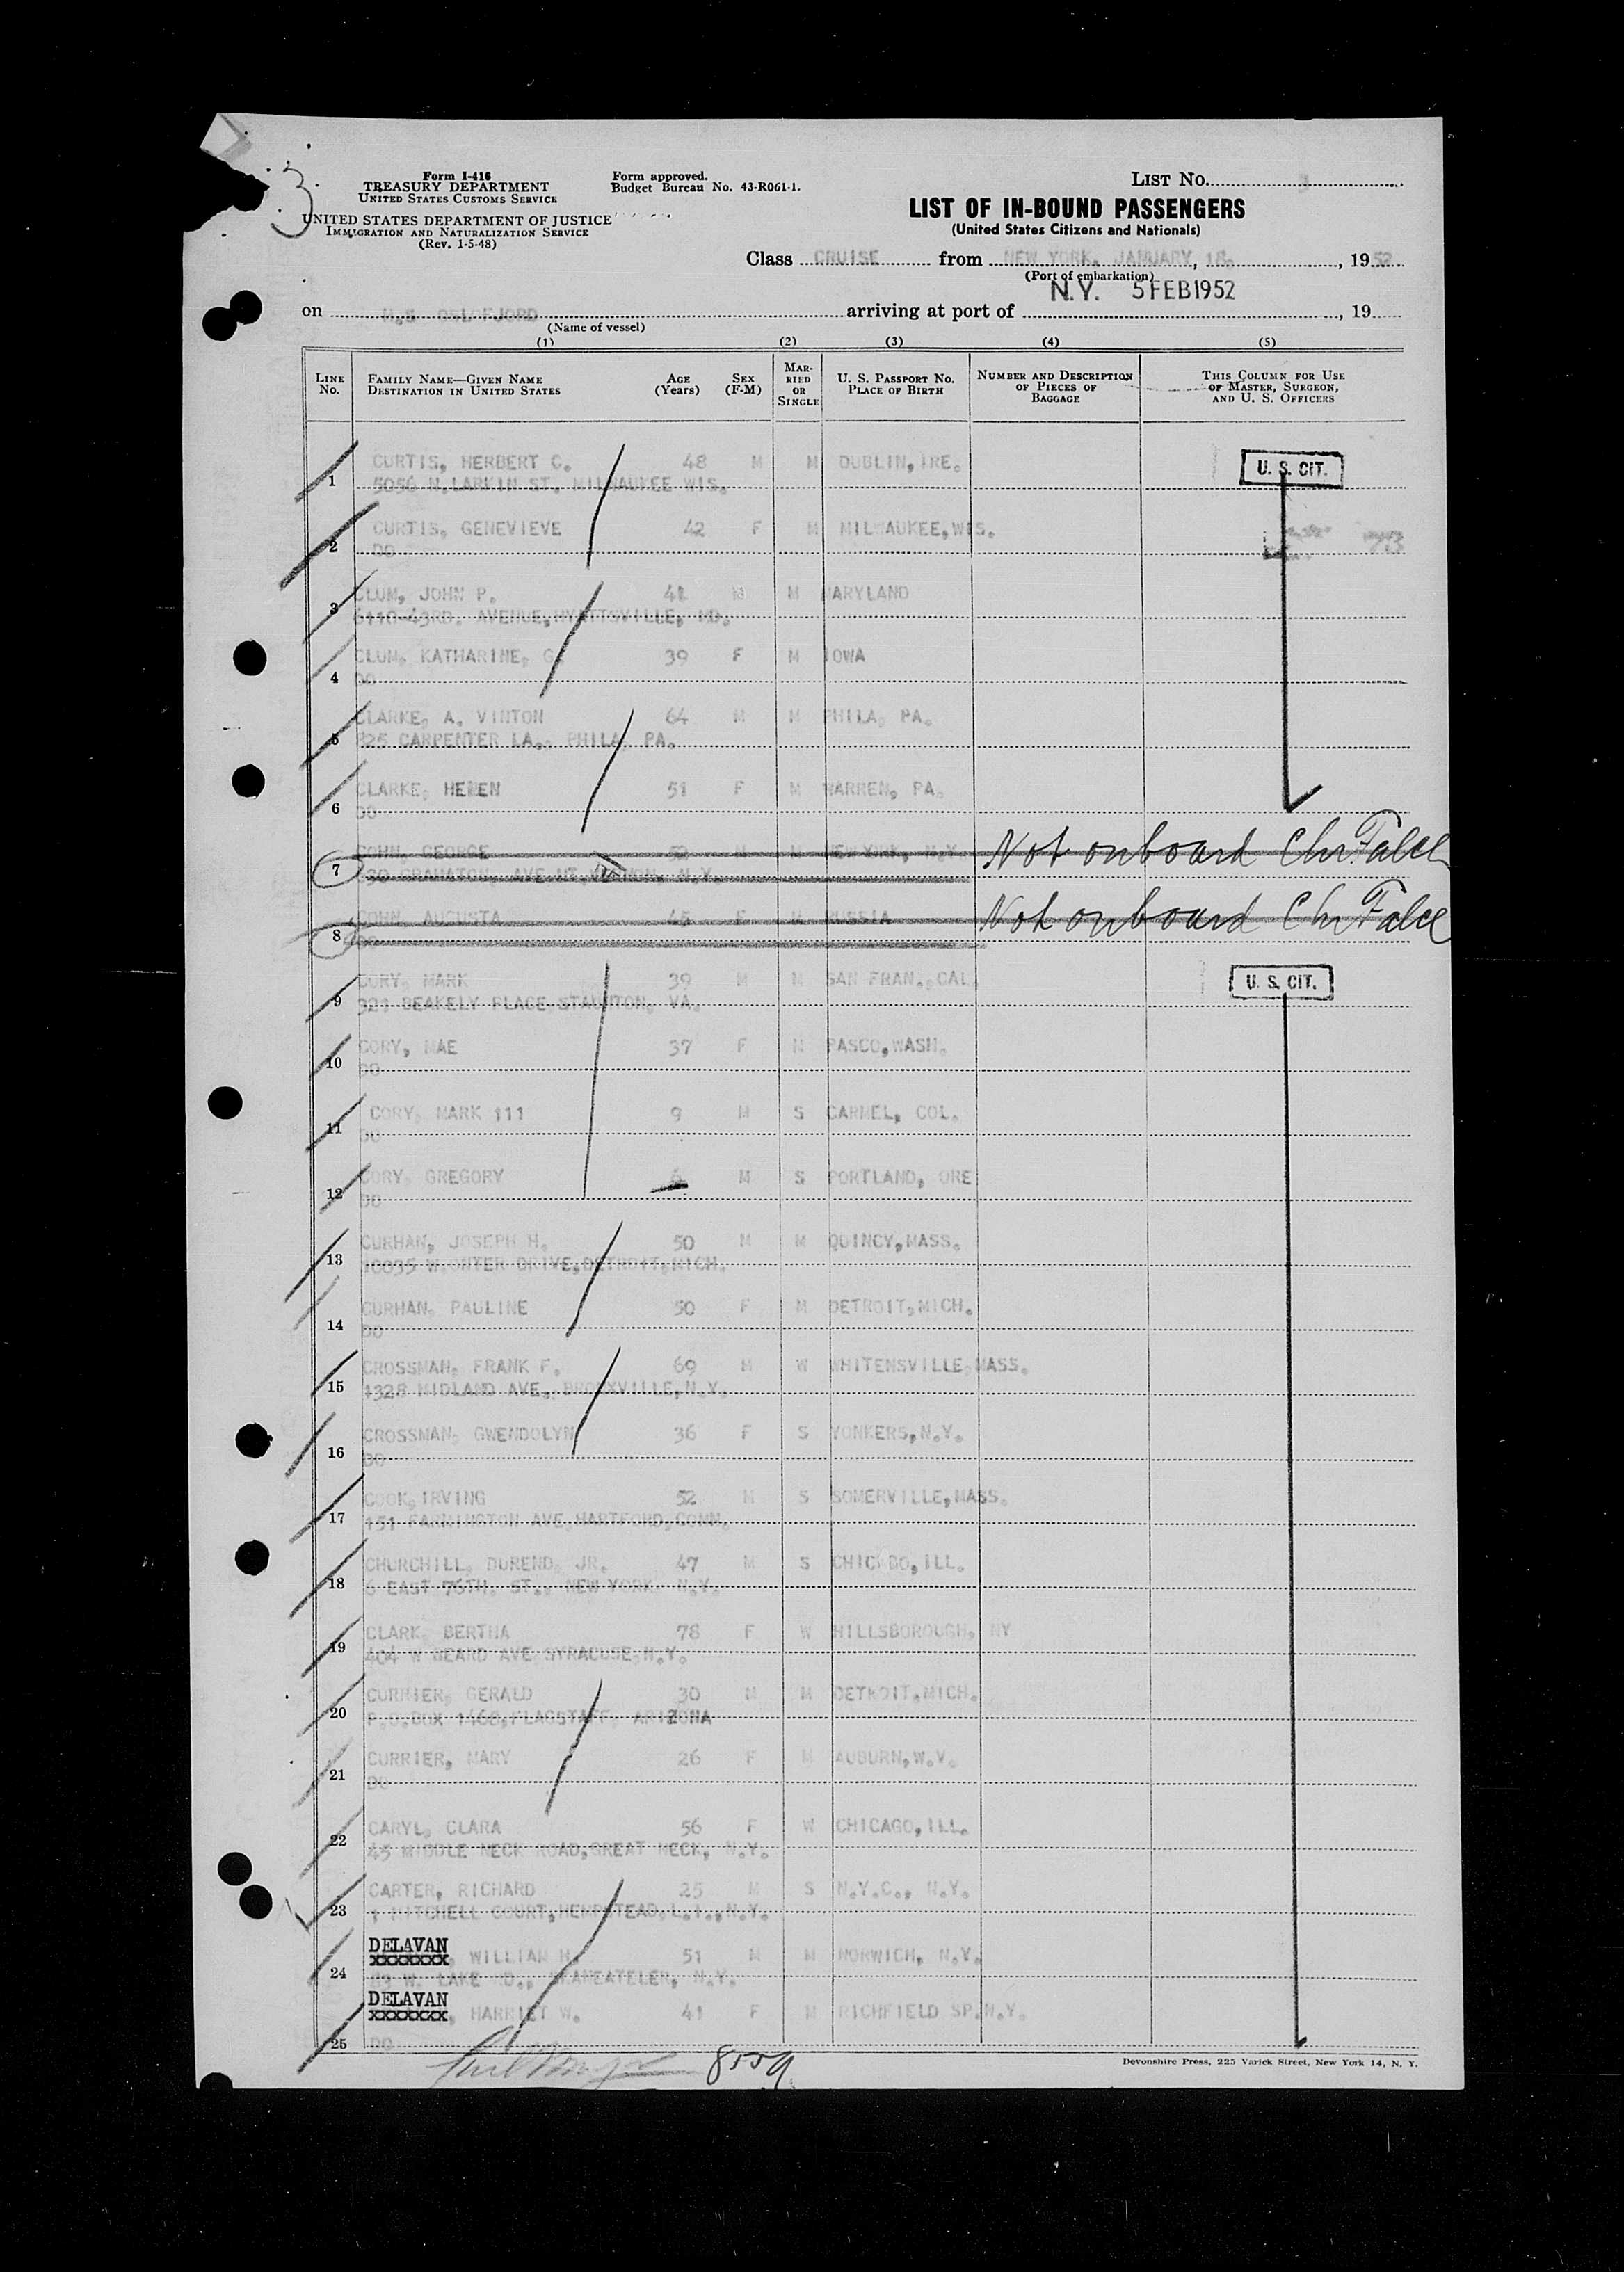 3
Form I-416
TREASURY DEPARTMENT
UNITED STATES CUSTOMS SERVICE
UNITED STATES DEPARTMENT OF JUSTICE
IMMIGRATION AND NATURALIZATION SERVICE
(Rev. 1-5-48)
Form approved.
Budget Bureau No. 43-R061-1.
LIST No. 3
LIST OF IN-BOUND PASSENGERS
(United States Citizens and Nationals)
Class CRUISE from NEW YORK, JANUARY, 18, 1952
(Port of embarkation)
N.Y. 5 FEB 1952
on M.S OSLOFJORD arriving at port of , 19
(Name of vessel)
(1) (2) (3) (4) (5)
LINE No. FAMILY NAME—GIVEN NAME DESTINATION IN UNITED STATES AGE (Years) SEX (F-M) MARRIED OR SINGLE U. S. PASSPORT NO. PLACE OF BIRTH NUMBER AND DESCRIPTION OF PIECES OF BAGGAGE THIS COLUMN FOR USE OF MASTER, SURGEON, AND U. S. OFFICERS
1 CURTIS, HERBERT C. 48 M M DUBLIN, IRE. U. S. CIT.
5056 N.LARKIN ST. MILWAUKEE WIS.
2 CURTIS, GENEVIEVE 42 F M MILWAUKEE,WIS.
DO
3 CLUM, JOHN P. 41 M M MARYLAND
6110-43RD. AVENUE,HYATTSVILLE, MD.
4 CLUM, KATHARINE, G. 39 F M IOWA
DO
5 CLARKE, A. VINTON 64 M M PHILA, PA.
825 CARPENTER LA., PHILA PA.
6 CLARKE, HELEN 51 F M WARREN, PA.
DO
7 COHN, GEORGE 52 M M NEW YORK, N.Y. Not onboard Chr. Falck
AVE MT. N.Y.
8 COHN, AUGUSTA 45 F M RUSSIA Not onboard Chr Falck
DO
9 CORY, MARK 39 M M SAN FRAN.,CAL. U. S. CIT.
321 BEAKELY PLACE STAUNTON, VA.
10 CORY, MAE 37 F M PASCO,WASH.
DO
11 CORY, MARK 111 9 M S CARMEL, COL.
DO
12 CORY, GREGORY M S PORTLAND, ORE
DO
13 CURHAN, JOSEPH H. 50 M M QUINCY,MASS.
10035 W.OUTER DRIVE,DETROIT,MICH.
14 CURHAN, PAULINE 50 F M DETROIT,MICH.
DO
15 CROSSMAN, FRANK F. 69 M W WHITENSVILLE,MASS.
1328 MIDLAND AVE., BRONXVILLE,N.Y.
16 CROSSMAN, GWENDOLYN 36 F S YONKERS,N.Y.
DO
17 COOK,IRVING 52 M S SOMERVILLE,MASS.
151 FARMINGTON AVE,HARTFORD,CONN.
18 CHURCHILL, DUREND, JR. 47 M S CHICAGO,ILL.
6 EAST 76TH. ST., NEW YORK, N.Y.
19 CLARK, BERTHA 78 F W HILLSBOROUGH, NY
404 W BEARD AVE,SYRACUSE,N.Y.
20 CURRIER, GERALD 30 M M DETROIT,MICH.
P.O.BOX 1468,FLAGSTAFF, ARIZONA
21 CURRIER, MARY 26 F M AUBURN,W.V.
DO
22 CARYL, CLARA 56 F W CHICAGO,ILL.
45 MIDDLE NECK ROAD,GREAT NECK, N.Y.
23 CARTER, RICHARD 25 M S N.Y.C., N.Y.
1 MITCHELL COURT,HEMPSTEAD,L.I.,N.Y.
24 DELAVAN XXXXXXX, WILLIAM H. 51 M M NORWICH, N.Y.
W. LAKE RD., SKANEATELER, N.Y.
25 DELAVAN XXXXXXX, HARRIET W. 41 F M RICHFIELD SP.N.Y.
DO
8559
Devonshire Press, 225 Varick Street, New York 14, N. Y.